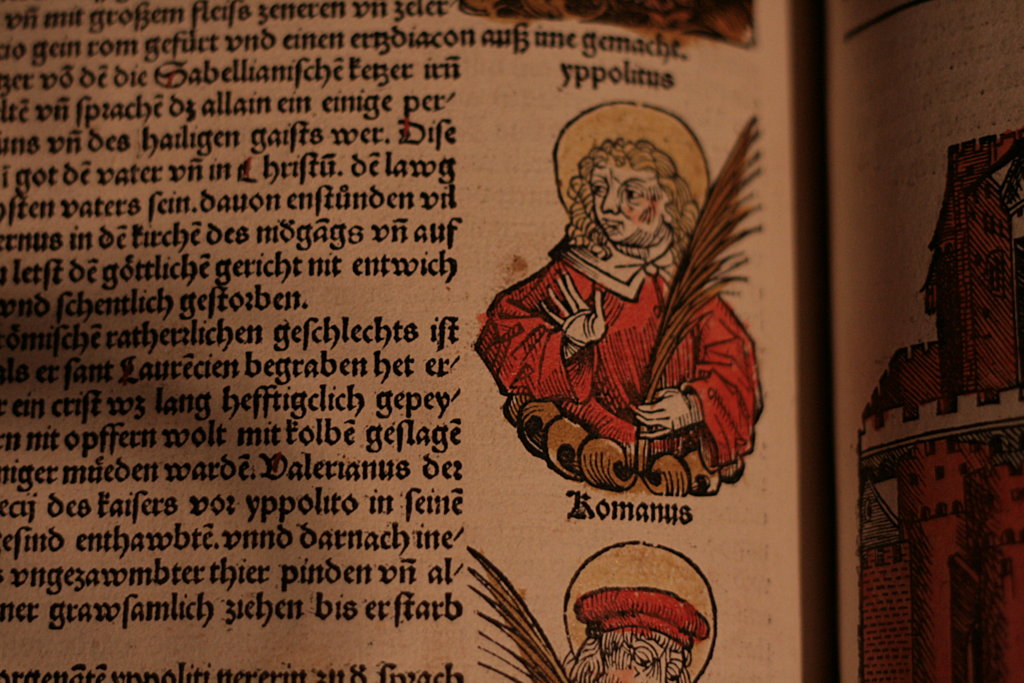 vñ mit großem fleiss zeneren vñ zeler
cio gein rom gefürt vnd einen ertzdiacon auß ime gemacht.
tzer võ dē die Sabellianischē ketzer irñ
ltē vñ sprachē dz allain ein einige per/
uns vñ des hailigen gaists wer. Dise
ī got dē vater vñ in Christū. dē lawg
sten vaters sein. dauon enstůnden vil
ernus in dē kirchē des mõgāgs vñ auf
letst dē göttlichē gericht nit entwich
vnd schentlich gestorben.
römischē ratherrlichen geschlechts ist
als er sant Laurēcien begraben het er/
ein crist wz lang hefftigclich gepey/
rn nit opffern wolt mit kolbē geslagē
niger mueden wardē. Valerianus der
ecij des kaisers vor yppolito in seinē
gesind enthawbtē. vnnd darnach ine/
vngezawmbter thier pinden vñ al/
ner grawsamlich ziehen bis er starb
orgenātē yppoliti nererin zu d sprach
yppolitus
Romanus